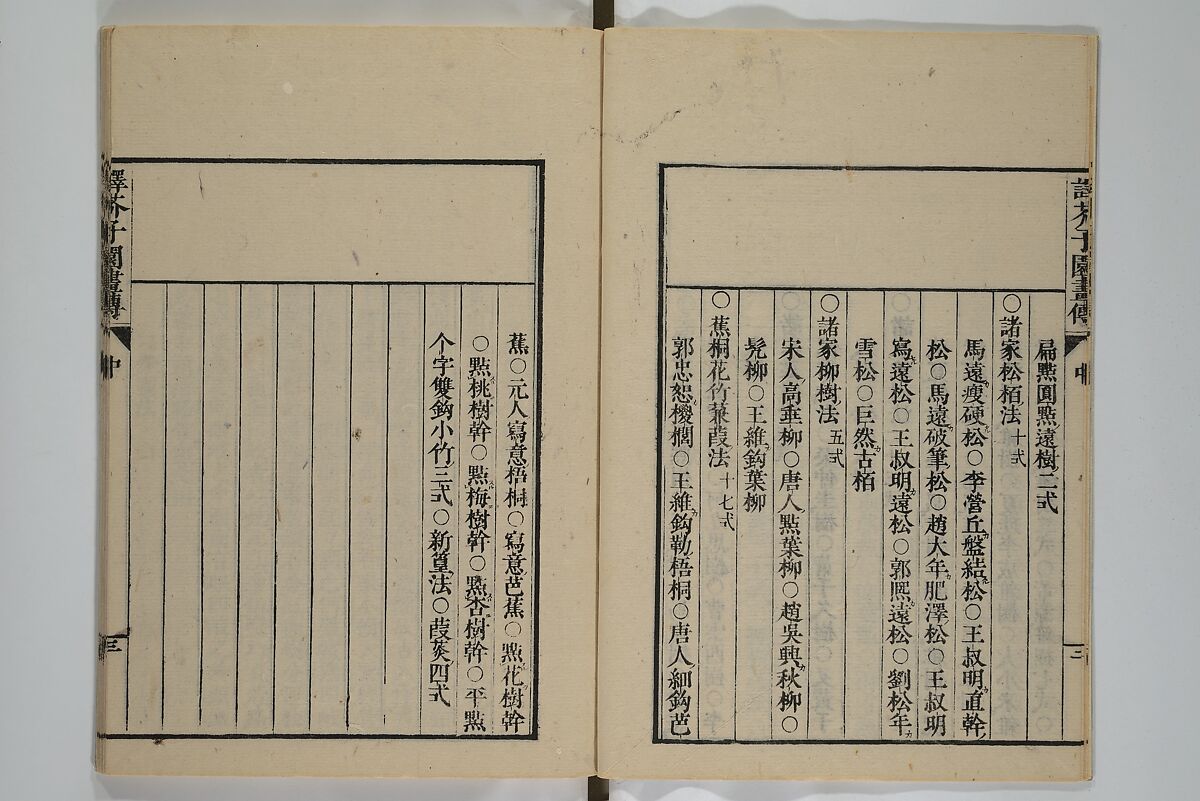 譯芥子園畫傳
中
三
扁㸃圓㸃遠樹二式
○諸家松栢法十式
馬遠瘦硬松○李營丘盤結松○王叔明直幹
松○馬遠破筆松○趙大年肥澤松○王叔明
寫遠松○王叔明遠松○郭熈遠松○劉松年
雪松○巨然古栢
○諸家柳樹法五式
宋人高垂柳○唐人㸃葉柳○趙吳興秋柳○
髠柳○王維鈎葉柳
○蕉桐花竹蒹葭法十七式
郭忠恕椶櫚○王維鈎勒梧桐○唐人細鈎芭
蕉○元人寫意梧桐○寫意芭蕉○㸃花樹幹
○㸃桃樹幹○㸃梅樹幹○㸃杏樹幹○平㸃
个字雙鈎小竹三式○新篁法○葭菼四式
譯芥子園畫傳
中
三